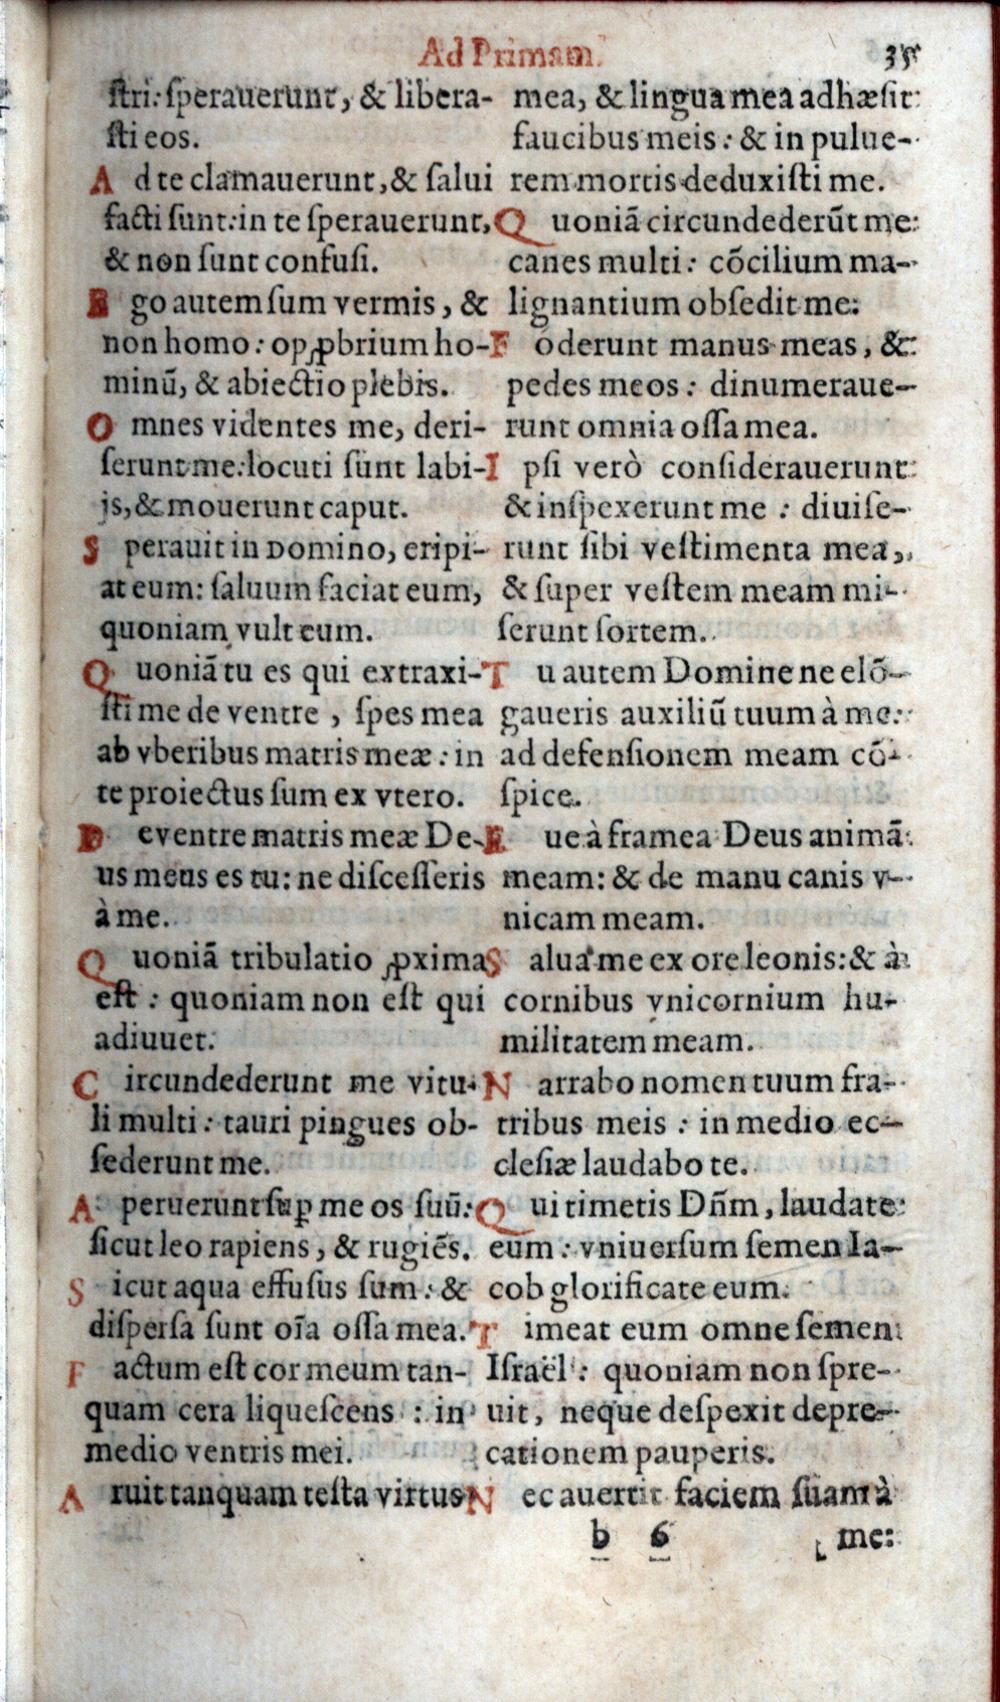 Ad Primam.
35
ſtri: ſperauerunt, & libera-
ſti eos.
Ad te clamauerunt, & ſalui
facti ſunt: in te ſperauerunt,
& non ſunt confuſi.
Ego autem ſum vermis, &
non homo: opꝓbrium ho-
minū, & abiectio plebis.
Omnes videntes me, deri-
ſerunt me: locuti ſunt labi-
js, & mouerunt caput.
Sperauit in Domino, eripi-
at eum: ſaluum faciat eum,
quoniam vult eum.
Quoniā tu es qui extraxi-
ſti me de ventre, ſpes mea
ab vberibus matris meæ: in
te proiectus ſum ex vtero.
De ventre matris meæ De-
us meus es tu: ne diſceſſeris
à me.
Quoniā tribulatio ꝓxima
eſt: quoniam non eſt qui
adiuuet.
Circundederunt me vitu-
li multi: tauri pingues ob-
ſederunt me.
Aperuerunt ſuꝑ me os ſuū:
ſicut leo rapiens, & rugiēs.
Sicut aqua effuſus ſum: &
diſperſa ſunt oīa oſſa mea.
Factum eſt cor meum tan-
quam cera liqueſcens: in
medio ventris mei.
Aruit tanquam teſta virtus
mea, & lingua mea adhæſit
faucibus meis: & in pulue-
rem mortis deduxiſti me.
Quoniā circundederūt me
canes multi: cōcilium ma-
lignantium obſedit me:
Foderunt manus meas, &
pedes meos: dinumeraue-
runt omnia oſſa mea.
Ipſi verò conſiderauerunt
& inſpexerunt me: diuiſe-
runt ſibi veſtimenta mea,
& ſuper veſtem meam mi-
ſerunt ſortem.
Tu autem Domine ne elō-
gaueris auxiliū tuum à me:
ad defenſionem meam cō-
ſpice.
Eue à framea Deus animā
meam: & de manu canis v-
nicam meam.
Salua me ex ore leonis: & à
cornibus vnicornium hu-
militatem meam.
Narrabo nomen tuum fra-
tribus meis: in medio ec-
cleſiæ laudabo te.
Qui timetis Dn̄m, laudate
eum: vniuerſum ſemen Ia-
cob glorificate eum.
Timeat eum omne ſemen
Iſraël: quoniam non ſpre-
uit, neque deſpexit depre-
cationem pauperis.
Nec auertit faciem ſuam à
b 6
me: